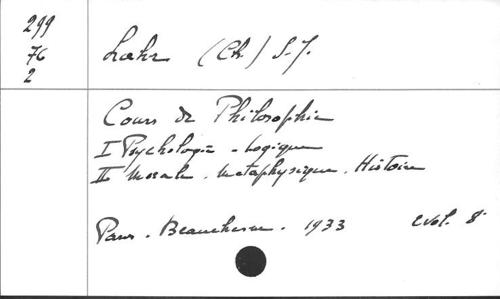 299
76
2
Lahr (Ch) S.J.
Cours de Philosophie
I Psychologie - Logique
II Morale. Métaphysique. Histoire
Paris. Beauchesne. 1933 2 vol. 8°